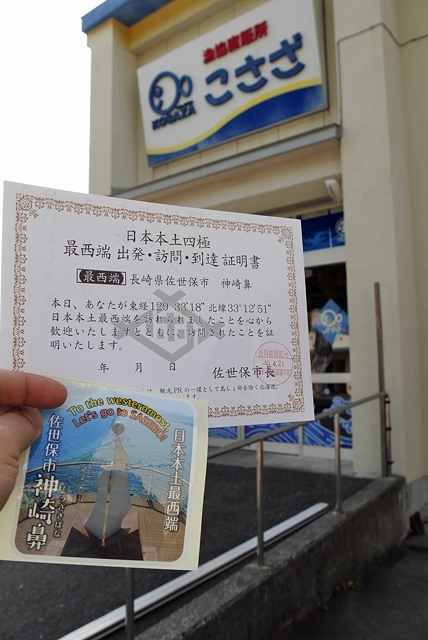 漁協直販所
こさざ
KOSAZA
日本本土四極
最西端 出発・訪問・到達 証明書
【最西端】長崎県佐世保市 神崎鼻
本日、あなたが東経129°33′18″北緯33°12′51″
日本本土最西端を訪れられましたことを心から
歓迎いたしますとともに、訪問されたことを証
明いたします。
年 月 日 佐世保市長
は、観光PRの一環として島しょ部を除く北海道、
To the westernmost
Let's go to SASEBO!
日本本土最西端
佐世保市
神崎鼻
こうざきばな